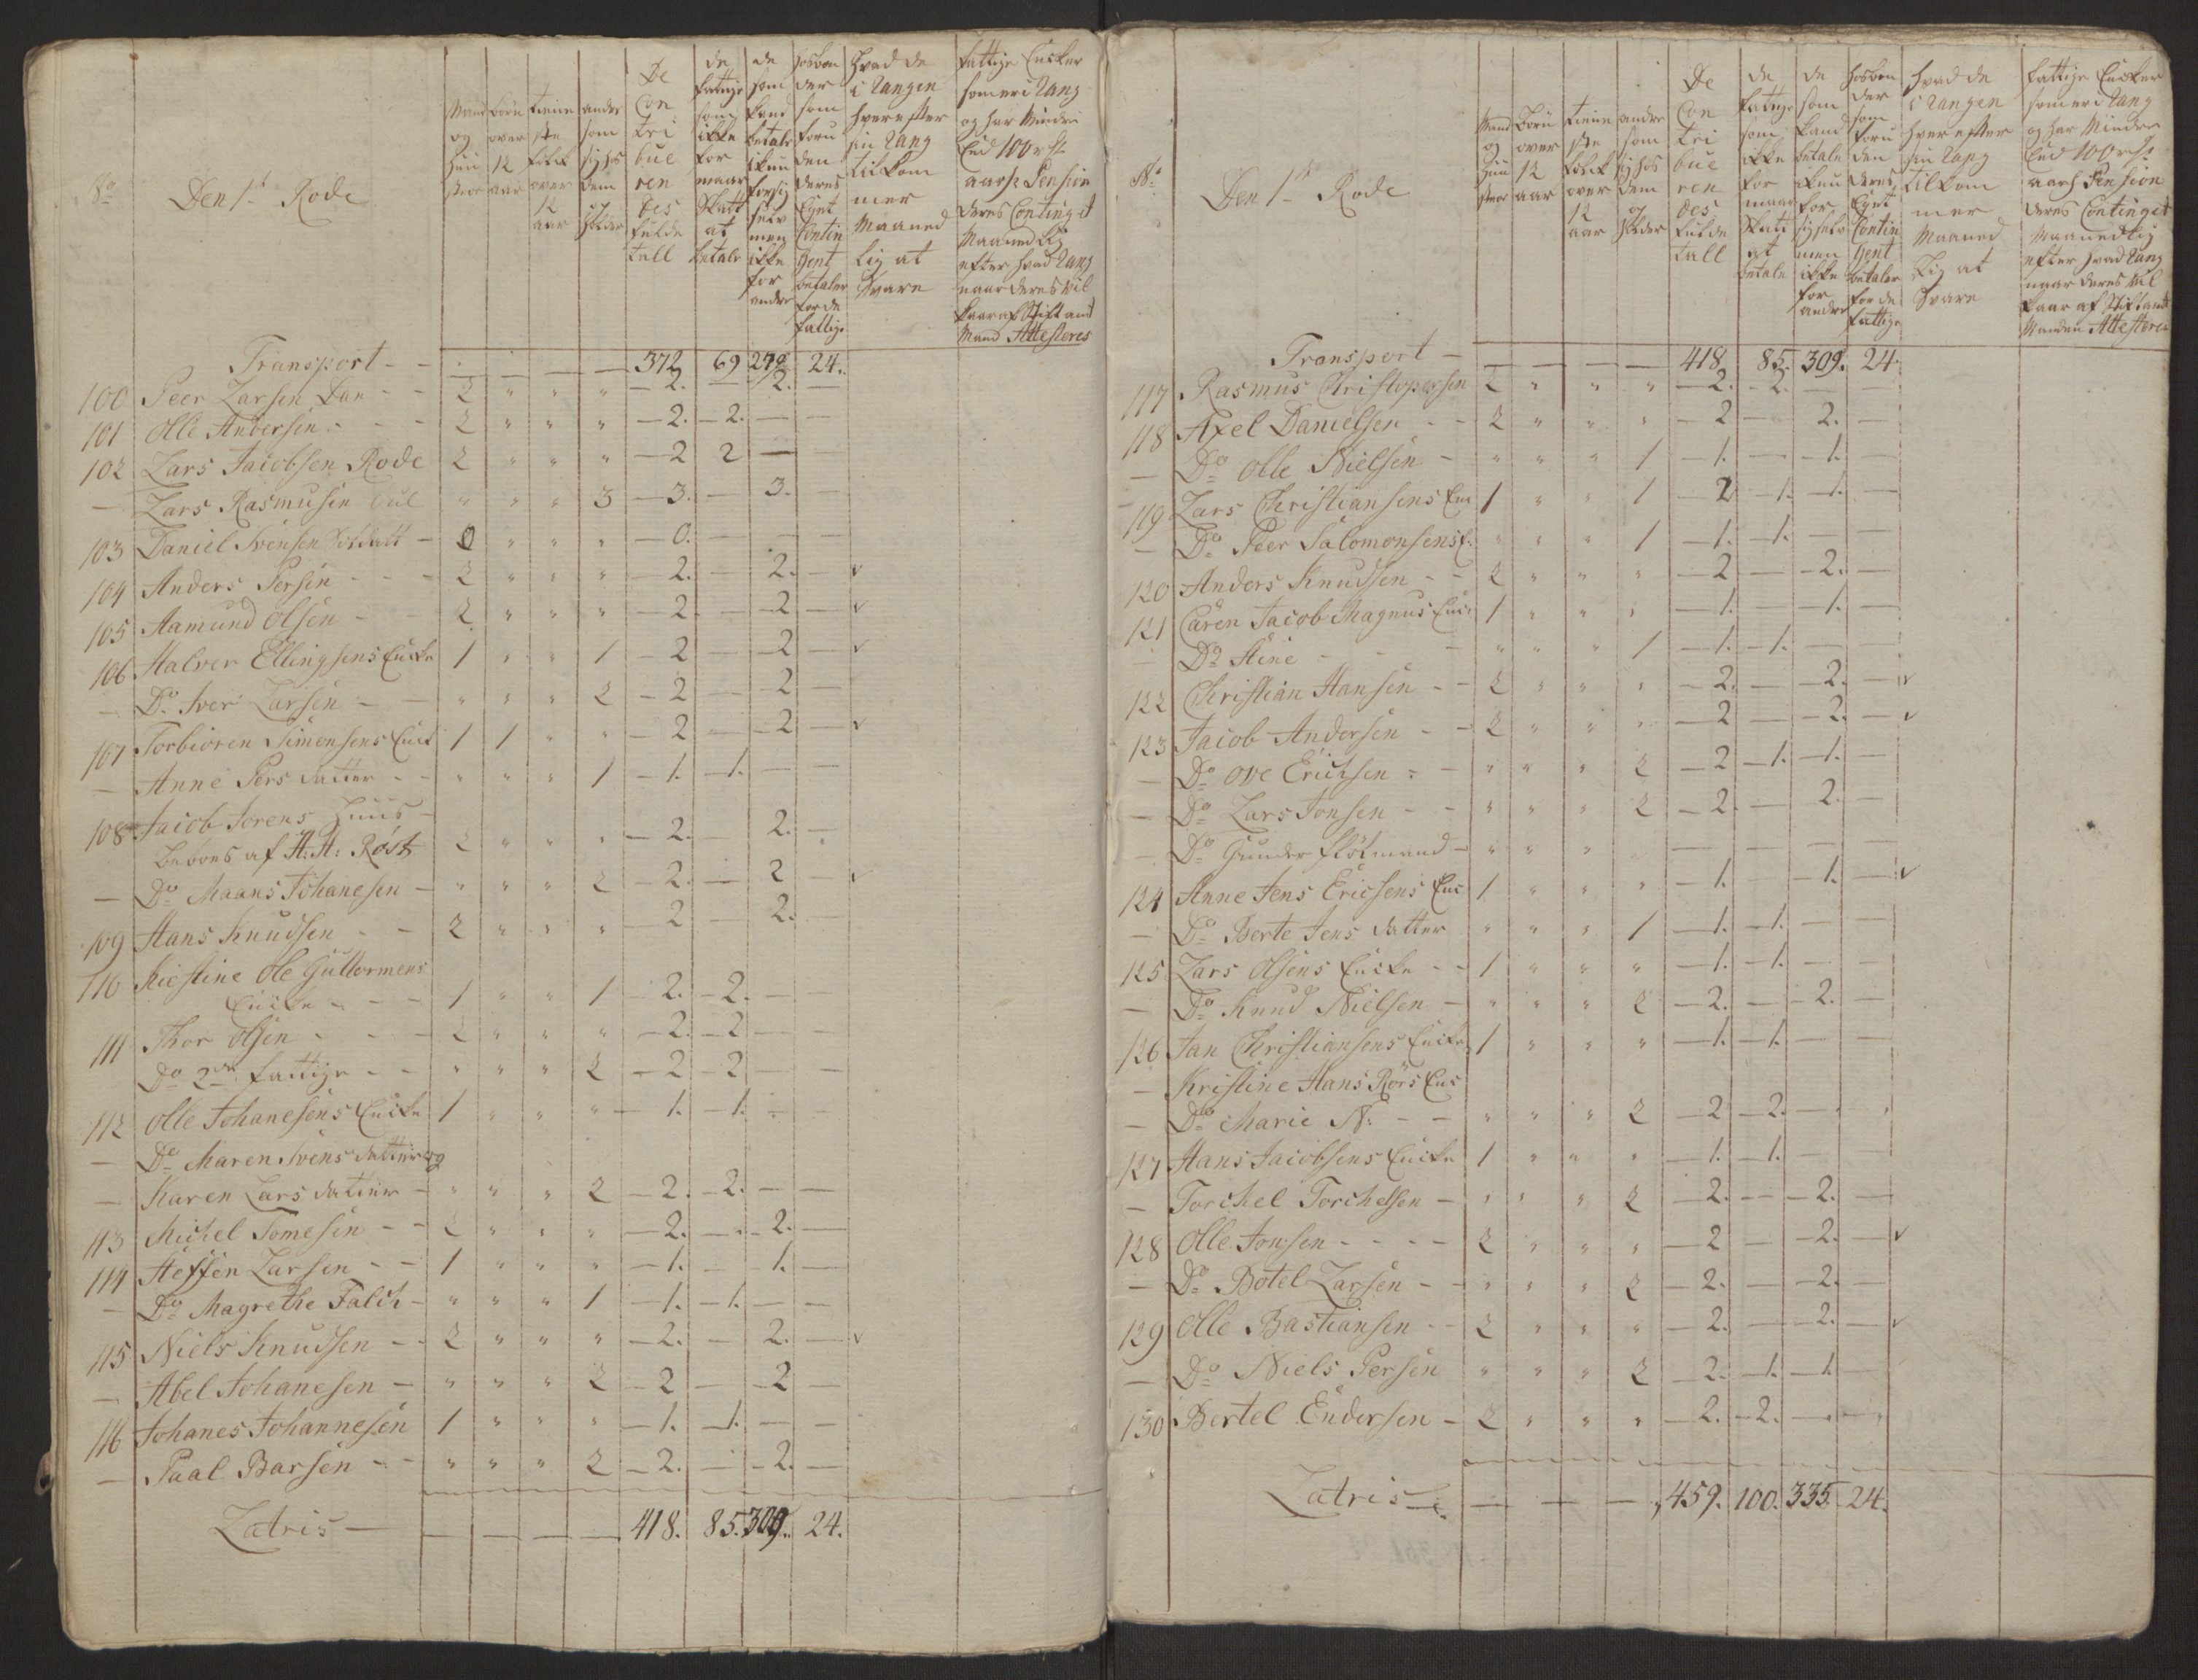 No
Den 1te Rode
Mand og Hustroe
Børn over 12 aar
Tienneste folck over 12 aar
andre som sig hos dem opholder
De Contribuerendes fulde tall
de fattige som ikke formaar Skatt at betale
de som kand betale ikun for sig selv men ikke for andre
hosbonder som foruden deres Eget Contingent betaler for de fattige
Hvad de i Rangen hver efter sin Rang tilkommer Maanedlig at Svare
fattige Encker som er i Rang og har Mindre End 100 rdr aarl: Pension deres Continget Maanedlig efter hvad Rang naar deres vilkaar af Stiftamt Mand Attesteres
Transport - - - - - 372 69 279 24.
100 Peer Larsen Dan - - 2 " " " - 2. - 2. -
101 Olle Andersen - - - 2 " " " - 2. - 2. - -
102 Lars Jacobsen Rode 2 " " " - 2 2 - -
- Lars Rasmusen " " " 3 - 3. - 3. -
103 Daniel Svensen Soldatt - 0 " " " - 0. - - -
104 Anders Persen - - - 2 " " " - 2. - 2. - v
105 Aamund Olsen - - 2 " " " - 2. - 2 - v
106 Halver Ellingsens Encke 1 " " 1 - 2 - 2 - v
- Do Iver Larsen - - " " " 2 - 2 - 2 -
107 Torbioren Simonsens Enck 1 1 " " - 2 - 2 - v
- Anne Pers datter - - " " " 1 - 1. - 1. - -
108 Jacob Jorens Huus -
beboes af A: A: Röst 2 " " " - 2. - 2. -
- Do Maans Johanesen - " " " 2 - 2. - 2 - v
109 Hans Knudsen - - 2 " " " - 2 - 2. -
110 Kiestine Ole Guttormens
Encke - - - 1 " " 1 - 2. - 2. - -
111 Thor Olsen - - - 2 " " " - 2. - 2 - -
Do 2de fattige - - " " " 2 - 2 - 2 - -
112 Olle Johanesens Encke 1 " " " - 1. - 1. - -
- Do Maren Svens datter og
- Karen Lars datter - " " " 2 - 2. - 2. - -
113 Michel Tomesen - - 2 " " " - 2. - - 2. -
114 Steffen Larsen - - 1 " " " - 1. - 1. -
- Do Magrethe Falch - " " " 1 - 1. - 1. - -
115 Niels Knudsen - - 2 " " " - 2. - 2. - v
- Abel Johanesen - " " " 2 - 2 - 2 -
116 Johanes Johannesen 1 " " " - 1. - 1. - -
- Paal Barsen - - " " " 2 - 2. - 2. -
Latris - - - - - 418. 85. 309. 24.
No
Den 1te Rode
Mand og Hustroe
Børn over 12 aar
Tienneste folck over 12 aar
andre som sig hos dem op Holder
De Contribuerendes fulde tall
de fattige som ikke formaar Skatt at betale
de som kand betale ikun for sig selv men ikke for andre
hosbonder som foruden deres Eget Contingent betaler for de fattige
Hvad de i Rangen hver efter sin Rang tilkommer Maanedlig at Svare
fattige Encker som er i Rang og har Mindre End 100 rdr aarl: Pension deres Continget Maanedlig efter hvad Rang naar deres vilkaar af Stiftamt Manden Attesteres
Transport - - - - - 418. 85. 309. 24.
117 Rasmus Christophersen 2 " " " - 2. - 2. - -
118 Axel Danielsen - - 2 " " " - 2 - 2. -
- Do Olle Nielsen - " " " 1 - 1. - 1. -
119 Lars Christiansens En 1 " " 1 - 2 - 1. - 1. -
- Do Peer Salomonsens f: " " " 1 - 1. - 1. - -
120 Anders Knudsen - - 2 " " " - 2 - 2. -
121 Caren Jacob Magnus Enc 1 " " " - 1. - 1. -
- Do Stine - - - " " " 1 - 1. - 1. - -
122 Christian Hansen - - 2 " " " - 2. - 2. - v
123 Jacob Andersen - - 2 " " " - 2 - 2. - v
- Do Ove Erichsen - - " " " 2 - 2 - 1. - 1. -
- Do Lars Jonsen - - " " " 2 - 2. - 2. -
- Do Gunder flötmand - " " " " - - - -
124 Anne Jens Ericsens Enc 1 " " " - 1. - 1. - v
- Do Berte Jens datter " " " 1 - 1. - 1. - -
125 Lars Olsens Encke - - 1 " " " - 1. - 1. - -
- Do Knud Nielsen - " " " 2 - 2. - 2. -
126 Jan Christiansens Encke 1 " " " - 1. - 1. - -
- Kristine Hans Rörs Enc
- Do Marie N: - - " " " 2 - 2 - 2. - -
127 Hans Jacobsens Encke 1 " " " - 1. - 1. -
- Torchel Torchelsen - " " " 2 - 2. - 2. -
128 Olle Jonsen - - - - 2 " " " - 2 - 2. - v
- Do Botel Larsen - - " " " 2 - 2. - 2. -
129 Olle Bastiansen - - 2 " " " - 2. - 2. - v
- Do Niels Persen " " " 2 - 2. - 1. - 1. -
130 Bertel Endersen - 2 " " " - 2. - 2. - -
Latris - - - - 459. 100. 335. 24.